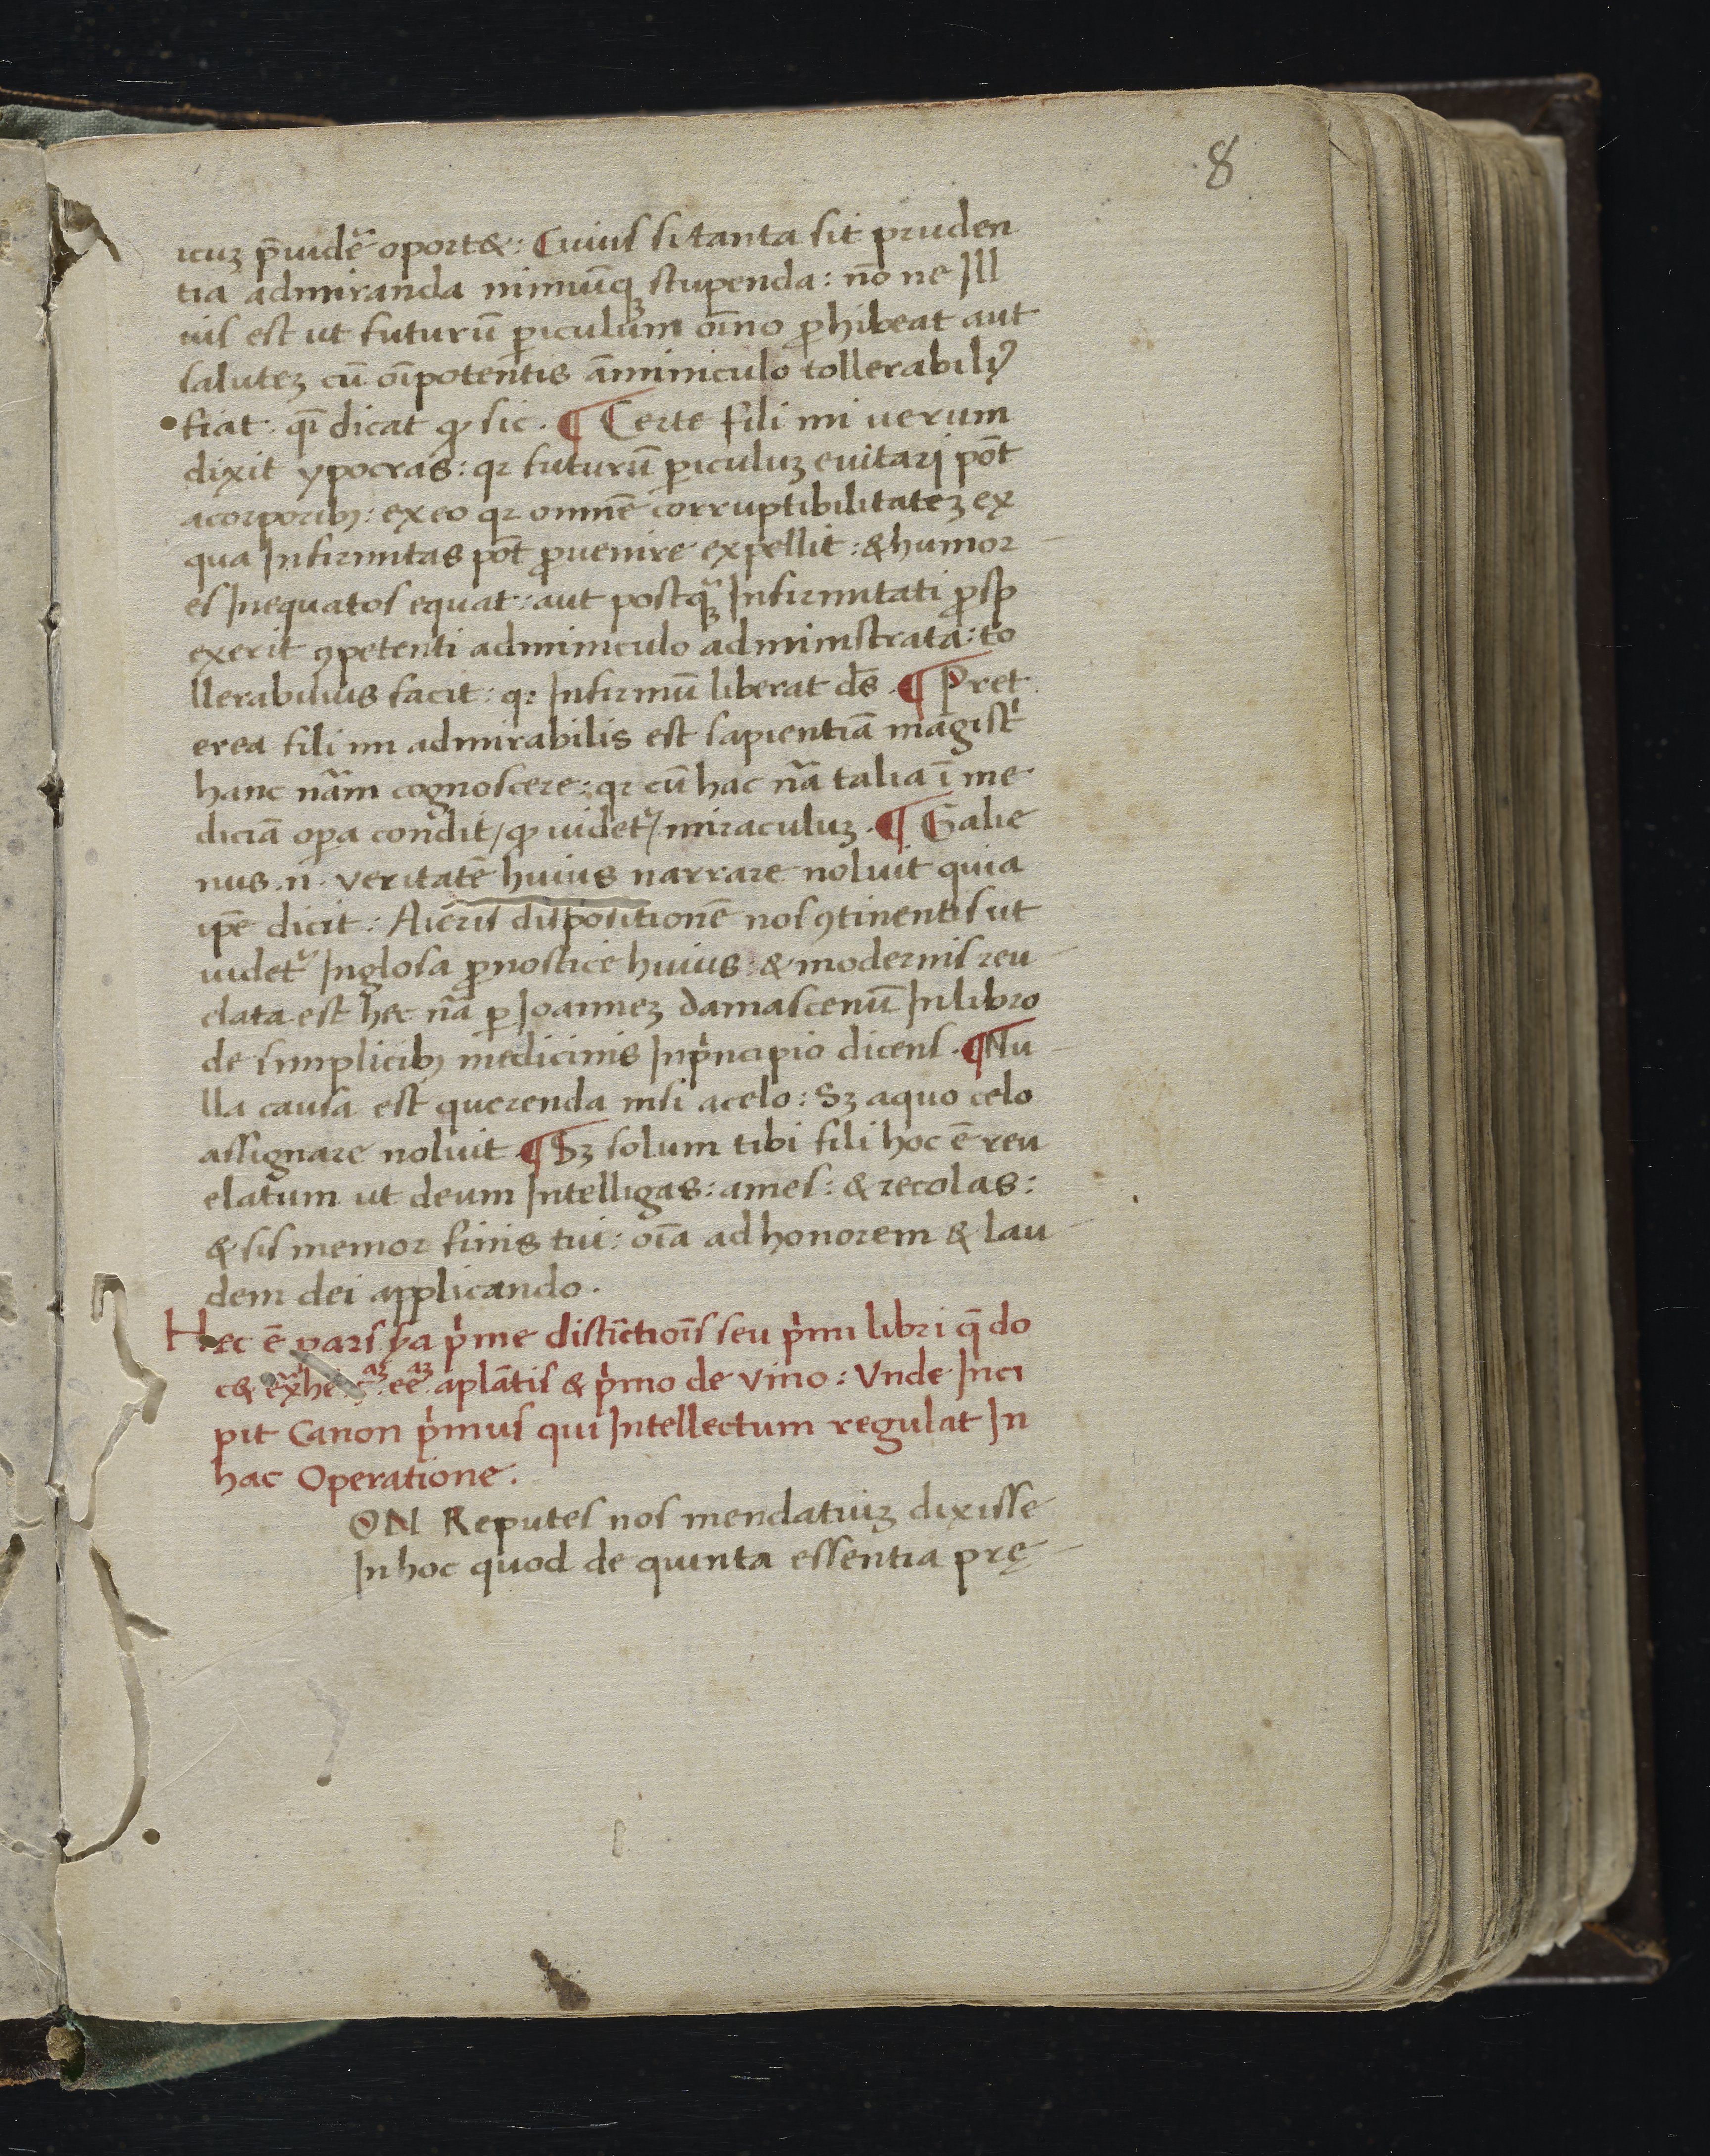 8
icuꝫ p̄uidē oport&: Cuius si tanta sit pruden
tia admiranda nimiūqꝫ stupenda: nō ne Ill
ius est ut futurū ꝑiculum oīno ꝓhibeat aut
saluteꝫ cū oīpotentis āminiculo tollerabiliꝰ
fiat. qī dicat ꝙ sic. ¶ Certe fili mi verum
dixit ypocras: qꝛ futurū ꝑiculuꝫ euitari pōt
acorporibꝫ: ex eo qꝛ omnē corruptibilitateꝫ ex
qua Infirmitas pōt ꝓuenire expellit: & humor
es Inequatos equat: aut postqꝫ Infirmitati ꝓsp
exerit ꝯpetenti adminiculo administrata: to
llerabilius facit: qꝛ Infirmū liberat ds̄. ¶ Pret
erea fili mi admirabilis est sapientiā magist̄
hanc nām cognoscere: qꝛ cū hac nā talia ī me
diciā oꝑa condit, ꝙ uidet᷑, miraculuꝫ. ¶ Galie
nus .n. veritatē huius narrare noluit quia
ip̄e dicit: Aieris dispositionē nos ꝯtinentis ut
uidet᷑ Inglosa ꝓnostice huius: & modernis reu
elata est hec nā ꝑ Joanneꝫ damascenū Inlibro
de simplicibꝫ medicinis Inpͥncipio dicens. ¶ Nu
lla causa est querenda nisi acelo: Sꝫ aquo celo
assignare noluit ¶ Sꝫ solum tibi fili hoc ē reu
elatum ut deum Intelligas: ames: & recolas:
& sis memor finis tui: oīa ad honorem & lau
dem dei applicando.
Hec ē pars .ya pͥme distīctiōis seu pͥmi libri q̄ do
c& aplātis & pͥmo de vino: Vnde Inci
pit Canon pͥmus qui Intellectum regulat In
hac Operatione.
ON Reputes nos mendatiuꝫ dixisse
In hoc quod de quinta essentia prę